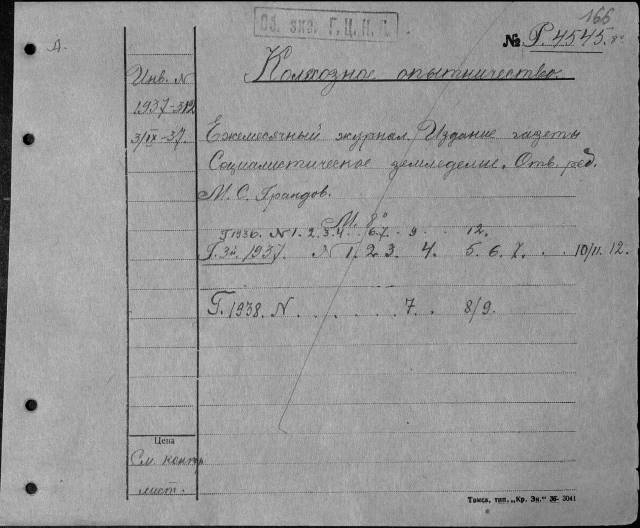 166
Об. экз. Г.Ц.К.П.
№ Р.4545.
А.
Колхозное опытничество.
Инв. N
1937-312
3/IX-37.
Ежемесячный журнал. Издание газеты
Социалистическое земледелие. Отв. ред.
М. С. Грандов.
М. 8°
Г 1936. N 1. 2. 3. 4. 6.7. 9. 12.
Г. 3й. 1937. N 1. 2. 3. 4. 5. 6. 7. 10/11. 12.
Г. 1938. N 7. 8/9.
Цена
См. контр.
лист.
Томск, тип. „Кр. Зн." 36- 3041